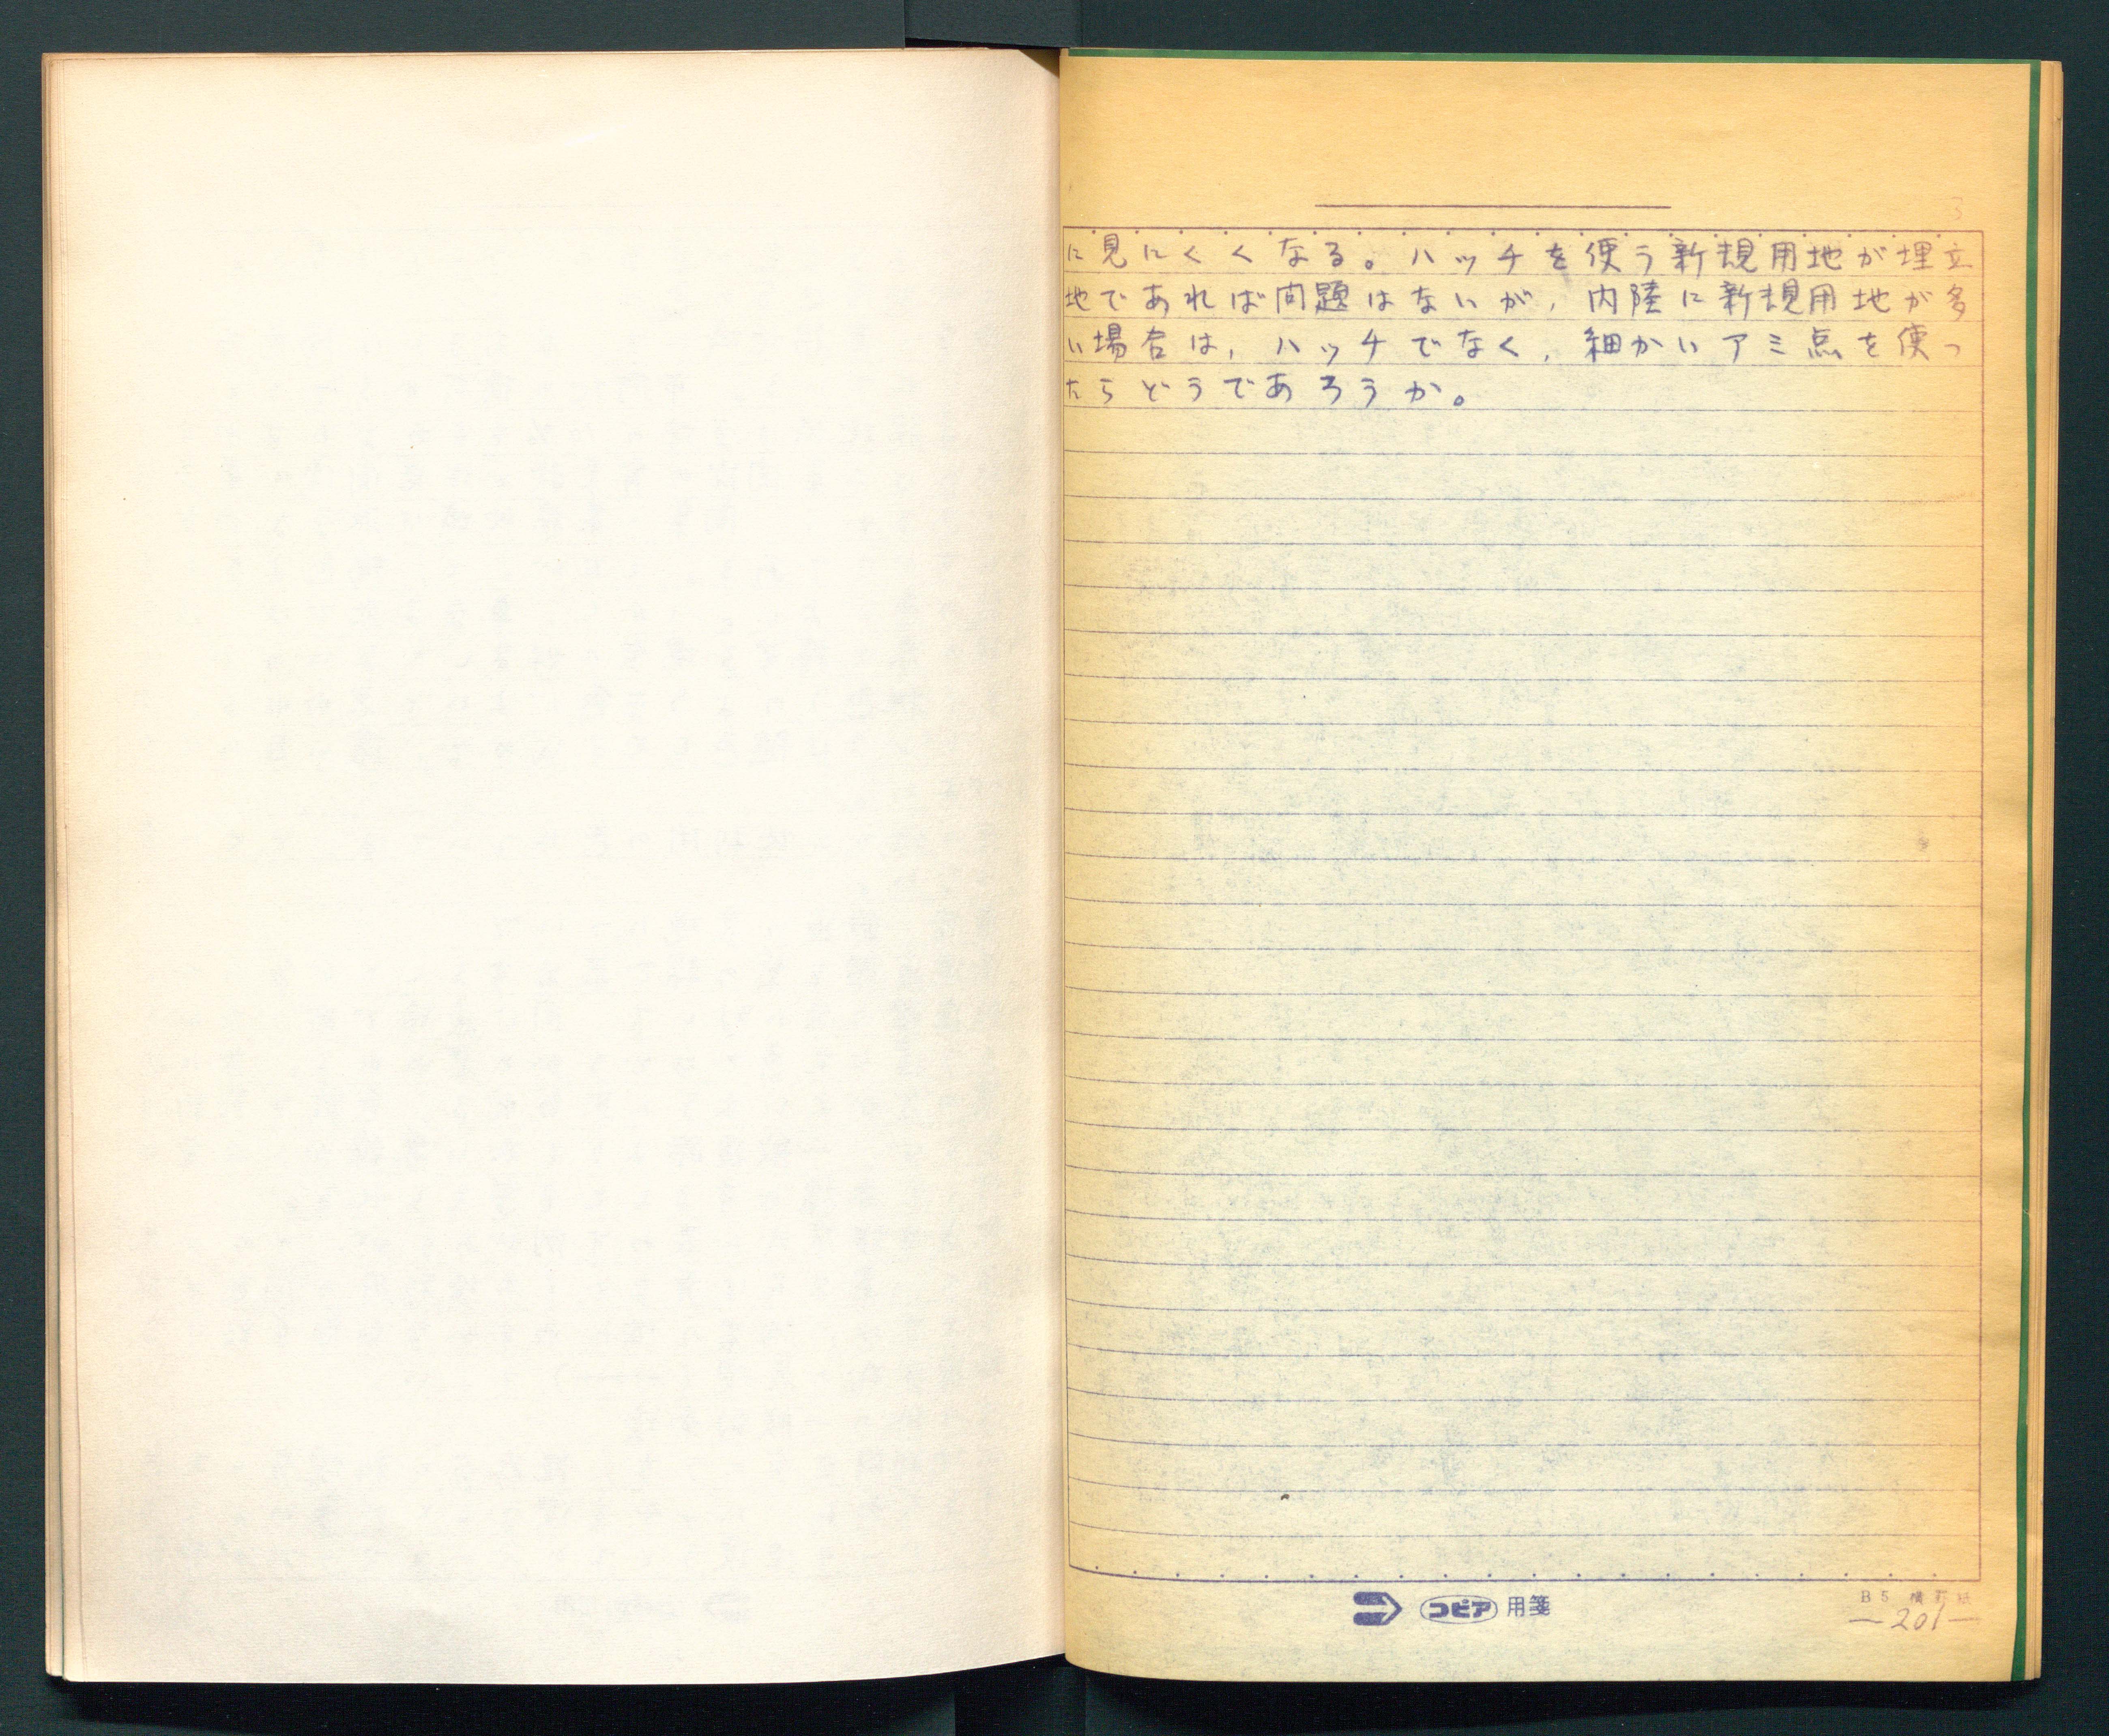 3
に見にくくなる。ハッチを使う新規用地が埋立
地であれば問題はないが，内陸に新規用地が多
い場合は，ハッチでなく，細かいアミ点を使っ
たらどうであろうか。
コピア 用箋
B5 横罫紙
—201—